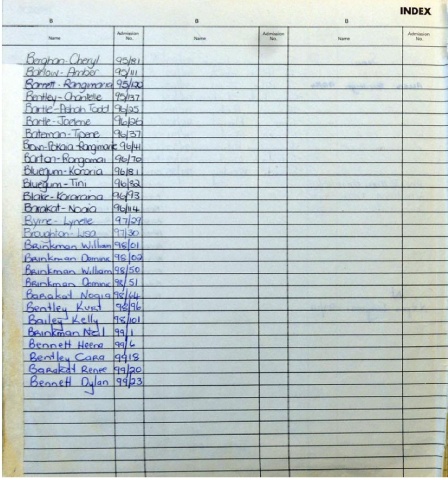 INDEX
B B B
Name Admission No. Name Admission No. Name Admission No.
Berghan-Cheryl 95/81
Barlow-Amber 95/111
Barnett-Rangimaria 95/120
Bentley-Chantelle 95/137
Bartle- Todd 96/25
Bartle-Jasmine 96/26
Bateman-Tipene 96/37
96/41
Barton-Rangamai 96/70
Bluegum-Kararia 96/81
Bluegum-Tini 96/82
Blake-Kararaina 96/93
Barakat-Nogia 96/114
Byrne-Lynelle 97/29
Broughton-Lisa 97/30
Brinkman William 98/01
Brinkman Dominic 98/02
Brinkman William 98/50
Brinkman Dominic 98/51
Barakat Nogia 98/64
Bentley Kurst 98/96
Bailey Kelly 98/101
Brinkman Neil 99/1
Bennett Heena 99/6
Bentley Cara 99/18
Barakat Renee 99/20
Bennett Dylan 99/23